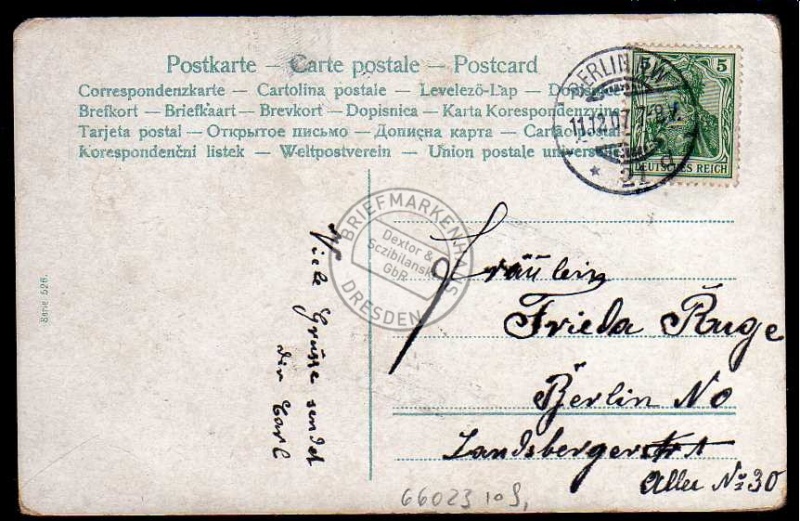 Postkarte — Carte postale — Postcard
Correspondenzkarte — Cartolina postale — Levelező-Lap —
Brefkort — Briefkaart — Brevkort — Dopisnica — Karta Korespondencyjna
Tarjeta postal — Открытое письмо — Дописна карта —
Korespondenční listek — Weltpostverein — Union postale universelle
BERLIN S.W.
11.12.07.
* 21
5
DEUTSCHES REICH
Serie 526.
Viele Grüsse sendet
dir Carl
BRIEFMARKENHAUS
Dextor &
Sczibilanski
GbR
DRESDEN
Fräulein
Frieda Ruge
Berlin No
Landsbergerstr
Allee No 30
66023 10